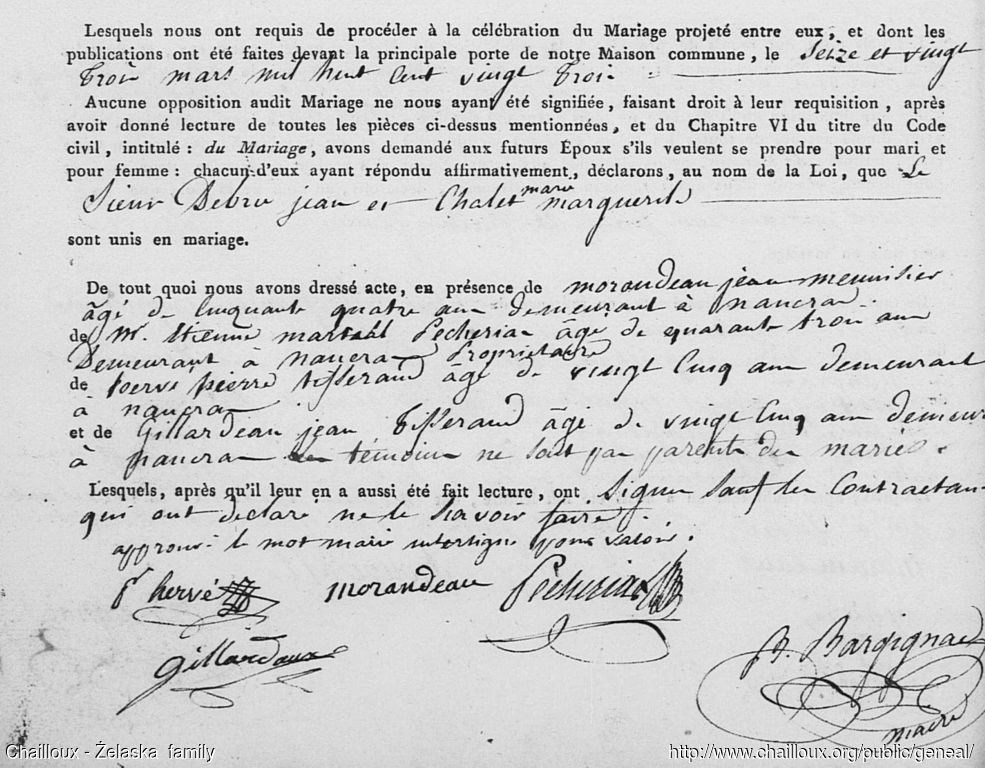 Lesquels nous ont requis de procéder à la célébration du Mariage projeté entre eux, et dont les
publications ont été faites devant la principale porte de notre Maison commune, le Seize et vingt
trois mars mil huit cent vingt trois
Aucune opposition audit Mariage ne nous ayant été signifiée, faisant droit à leur requisition, après
avoir donné lecture de toutes les pièces ci-dessus mentionnées, et du Chapitre VI du titre du Code
civil, intitulé : du Mariage, avons demandé aux futurs Époux s'ils veulent se prendre pour mari et
pour femme : chacun d'eux ayant répondu affirmativement, déclarons, au nom de la Loi, que Le
marie
Sieur Debru jean et Chalet marguerite
sont unis en mariage.
De tout quoi nous avons dressé acte, en présence de morandeau jean menuisier
âgé de Cinquante quatre ans demeurant à nancras.
de Mr. Etienne martial Pecheriau âgé de quarante trois ans
Demeurant à nancras Propriétaire
de hervé pierre tisserand âgé de vingt Cinq ans demeurant
à nancras
et de Gillardeau jean tisserand âgé de vingt Cinq ans demeur
à nancras les témoins ne sont pas parents des mariés.
Lesquels, après qu'il leur en a aussi été fait lecture, ont Signer Sauf les Contractans
qui ont déclaré ne le Savoir faire.
approuvé le mot marie interligne pour valoir.
p hervé morandeau Pécheriau
Gillardaux
B. Bargignac
maire
Chailloux - Želaska family http://www.chailloux.org/public/geneal/